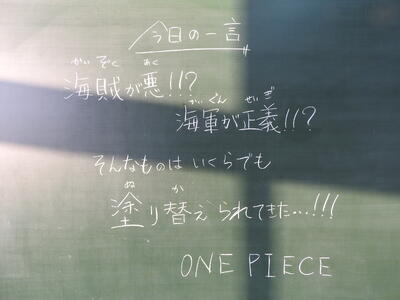 今日の一言
かいぞく あく
海賊が悪!!?
かいぐん せいぎ
海軍が正義!!?
そんなものは いくらでも
ぬ か
塗り替えられてきた…!!!
ONE PIECE